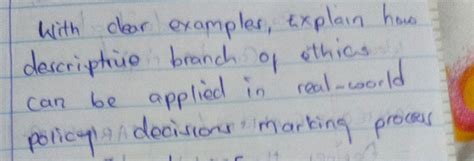 With clear examples, Explain how
descriptive branch of ethics
can be applied in real-world
policy decisions marking process